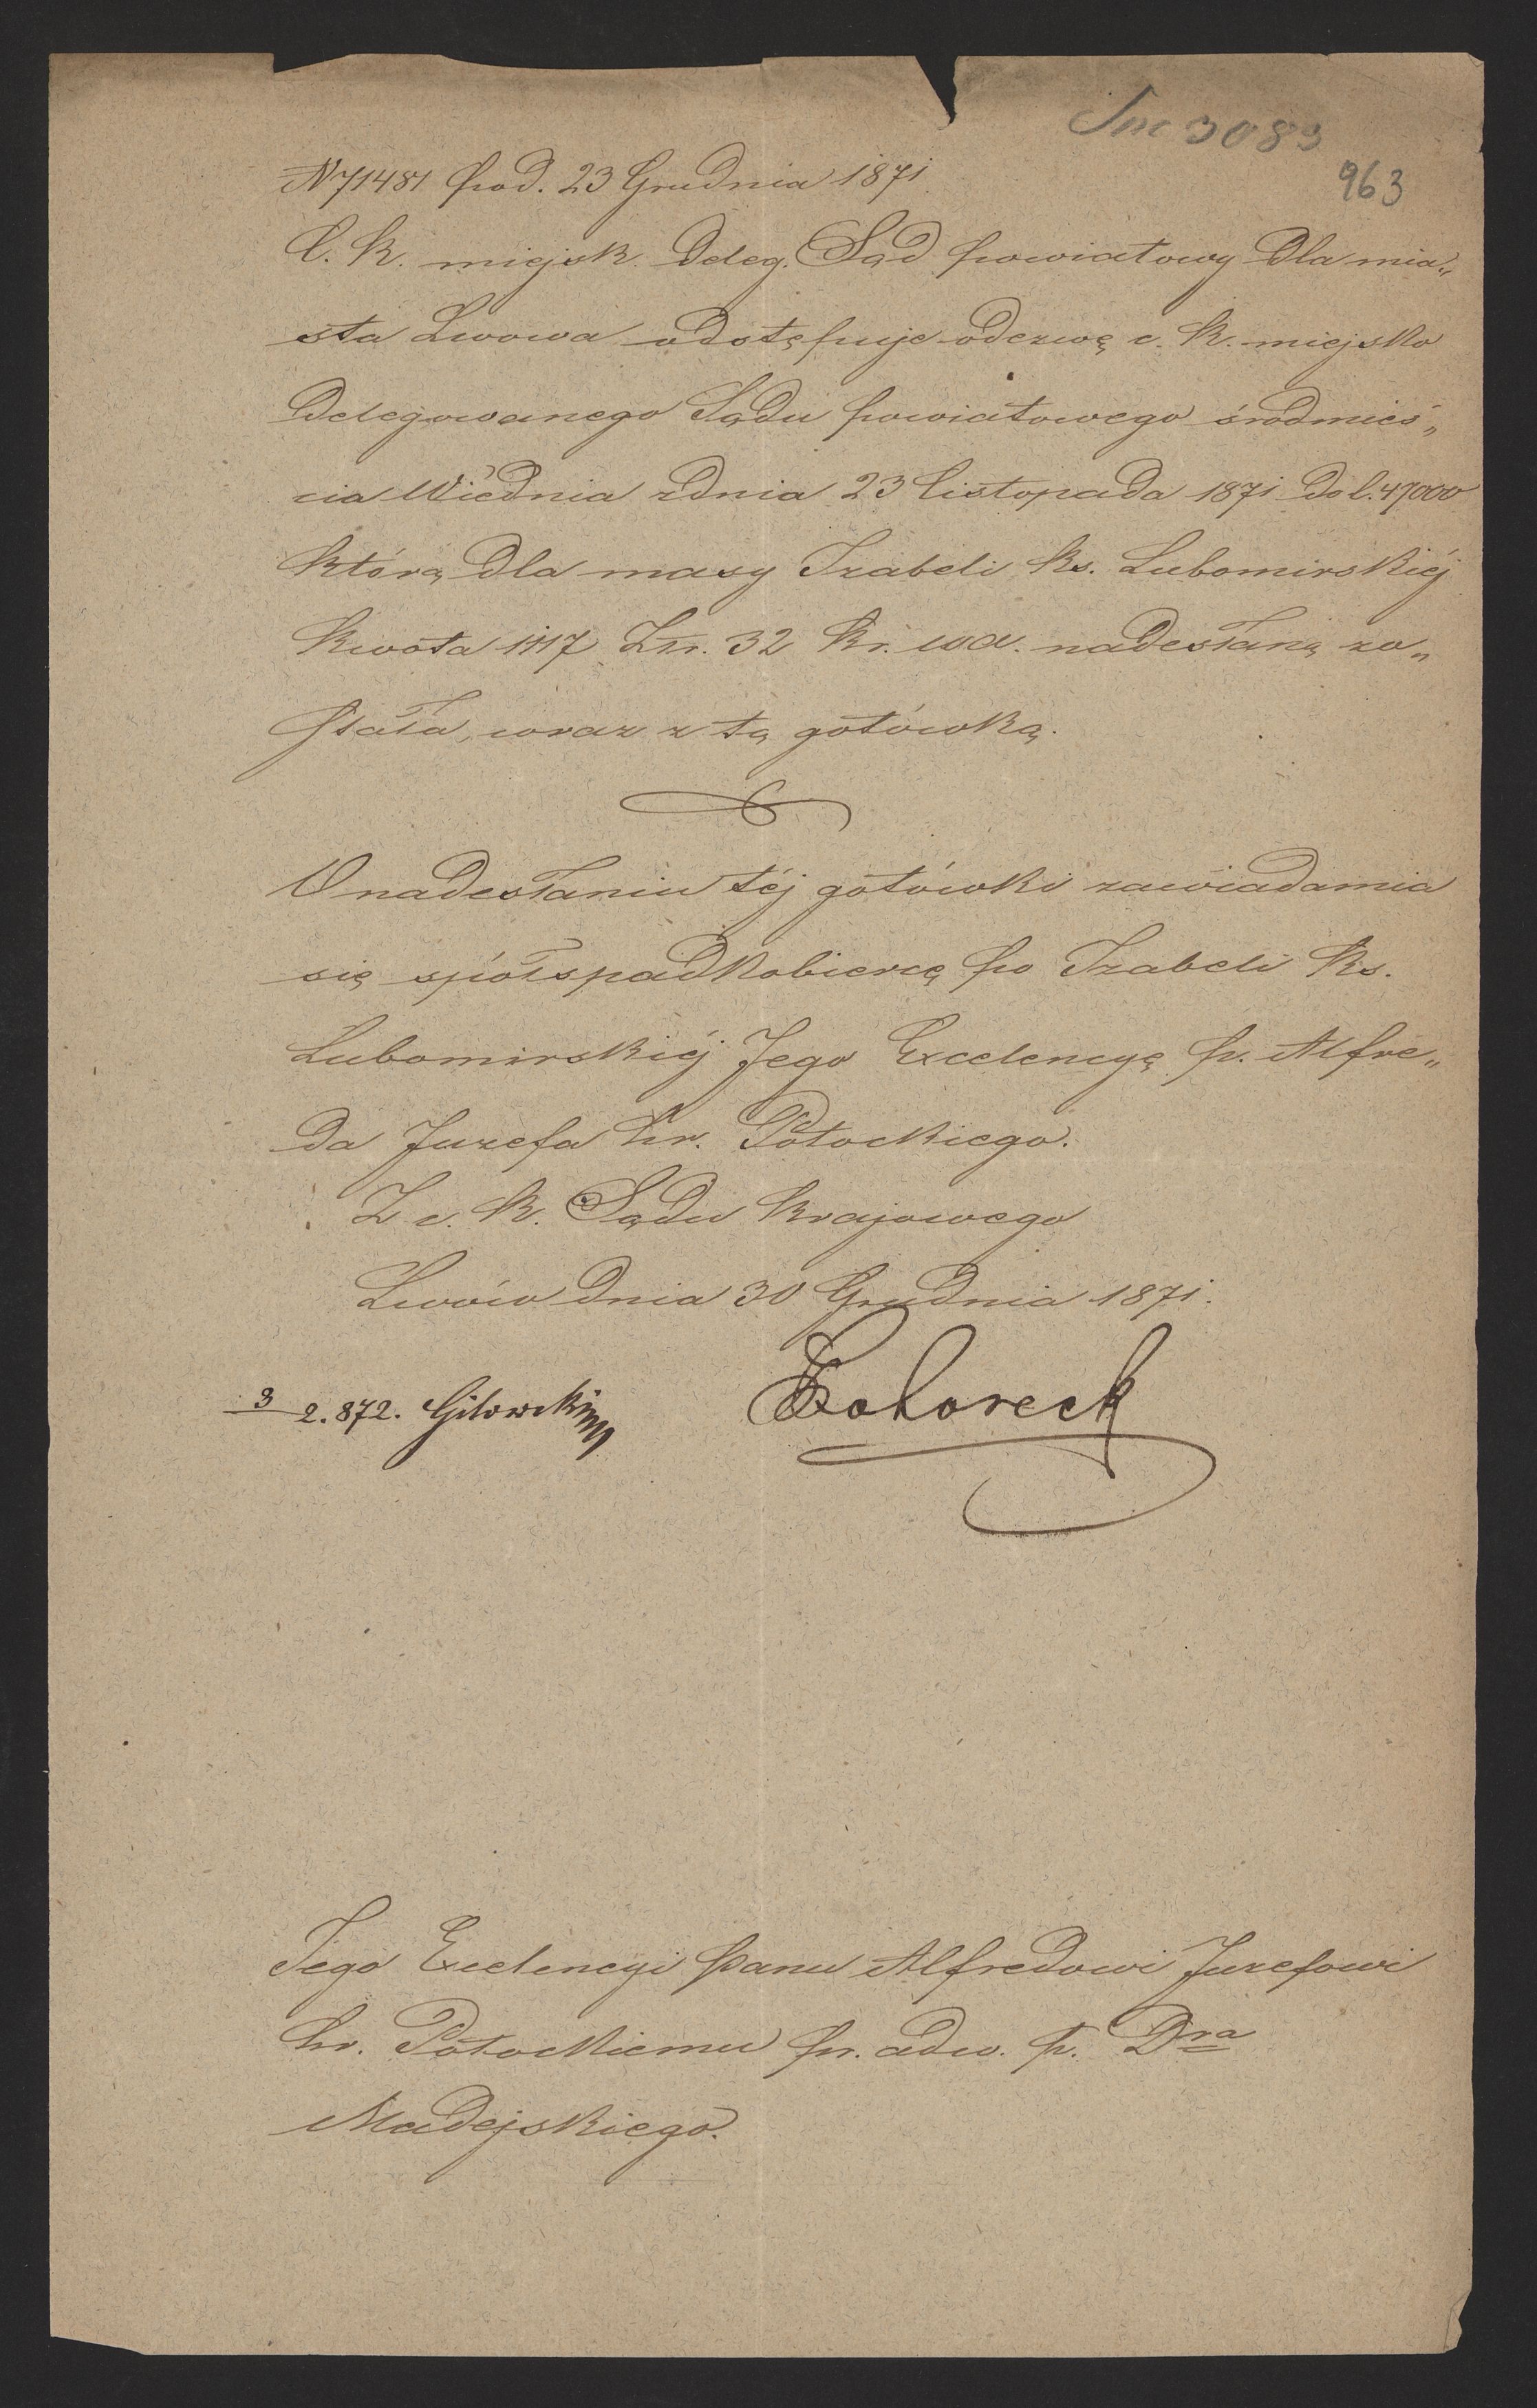 3083
963
N 71481 pod. 23 Grudnia 1871
C. K. miejsk. deleg. Sąd powiatowy dla mia„
sta Lwowa odstępuje odezwę c. k. miejsko
delegowanego Sądu powiatowego śródmieś„
cia Wiednia zdnia 23 listopada 1871 do l. 47000
którą dla masy Izabeli ks. Lubomirskiéj
kwota 1117 Zr. 32 kr. wa. nadesłaną zo„
stała, wraz z tą gotówką.
O nadesłaniu téj gotówki zawiadamia
się spółspadkobiercę po Izabeli ks.
Lubomirskiéj Jego Excelencyę p. Alfre„
da Juzefa hr. Potockiego.
Z c. k. Sądu krajowego
Lwów dnia 30 Grudnia 1871.
3 2.872. Gilowski
Jego Excelencyi panu Alfredowi Juzefowi
hr. Potockiemu pr. adw. p. Dra
Madejskiego.